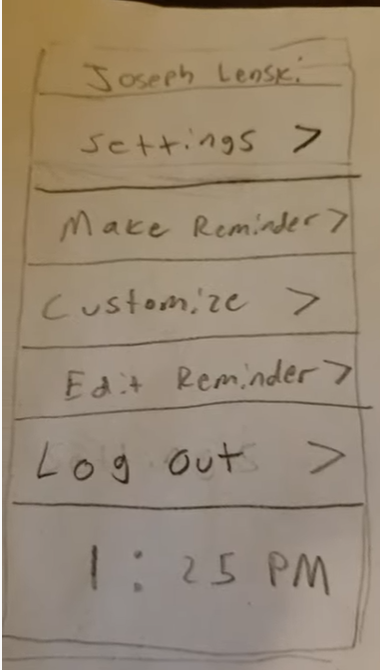 Joseph Lenski
Settings >
Make Reminder >
Customize >
Edit Reminder >
Log out >
1:25 PM